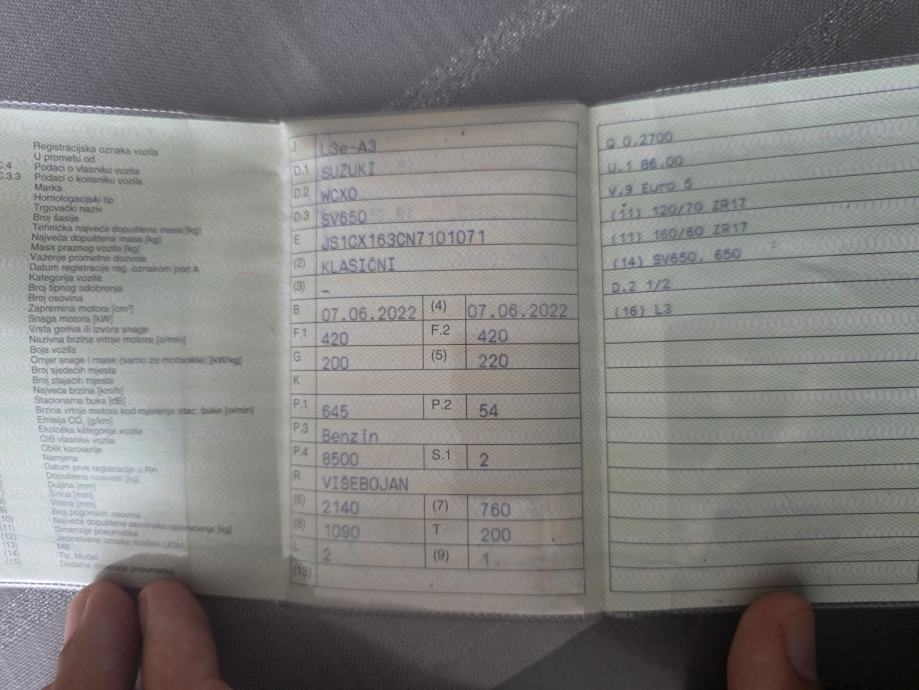 Registracijska oznaka vozila
U prometu od
C.4 Podaci o vlasniku vozila
C.3.3 Podaci o korisniku vozila
Marka
Homologacijski tip
Trgovački naziv
Broj šasije
Tehnička najveća dopuštena masa [kg]
Najveća dopuštena masa [kg]
Masa praznog vozila [kg]
Važenje prometne dozvole
Datum registracije reg. oznakom pod A
Kategorija vozila
Broj tipnog odobrenje
Broj osovina
Zapremina motora [cm³]
Snaga motora [kW]
Vrsta goriva ili izvora snage
Nazivna brzina vrtnje motora [o/min]
Boja vozila
Omjer snage i mase (samo za motocikle) [kW/kg]
Broj sjedećih mjesta
Broj stajaćih mjesta
Najveća brzina [km/h]
Stacionarna buka [dB]
Brzina vrtnje motora kod mjerenja stac. buke [o/min]
Emisija CO₂ [g/km]
Ekološka kategorija vozila
OIB vlasnika vozila
Oblik karoserije
Namjena
Datum prve registracije u RH
Dopuštena nosivost [kg]
Duljina [mm]
Širina [mm]
Visina [mm]
Broj pogonskih osovina
(10) Najveće dopuštena osovinsko opterećenja [kg]
(11) Dimenzije pneumatika
(12) Jedinstvena oznaka modela (JOM)
(13) MB
(14) Tip, Model
(15) Dodatne dimenzije pneumatika
J L3e-A3
D.1 SUZUKI
D.2 WCX0
D.3 SV650
E JS1CX163CN7101071
(2) KLASIČNI
(3) –
B 07.06.2022 (4) 07.06.2022
F.1 420 F.2 420
G 200 (5) 220
K
P.1 645 P.2 54
P.3 Benzin
P.4 8500 S.1 2
R VIŠEBOJAN
(6) 2140 (7) 760
(8) 1090 T 200
L 2 (9) 1
(13)
Q 0.2700
U.1 86.00
V.9 Euro 5
(11) 120/70 ZR17
(11) 160/60 ZR17
(14) SV650, 650
D.2 1/2
(16) L3